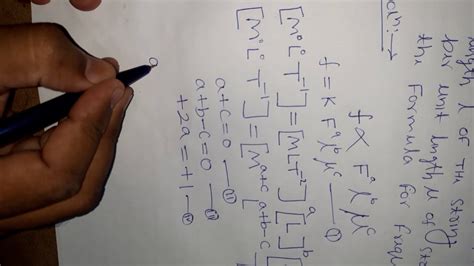 ength l of the string
per unit length μ of st
the formula for frequ
oln: →
f ∝ Fᵃ lᵇ μᶜ
f = K Fᵃ lᵇ μᶜ — (i)
[M⁰L⁰T⁻¹] = [MLT⁻²]ᵃ [L]ᵇ [
[M⁰L⁰T⁻¹] = [Mᵃ⁺ᶜ Lᵃ⁺ᵇ⁻ᶜ
a+c=0 — (ii)
a+b-c=0 — (iii)
+2a=+1 — (iv)
a